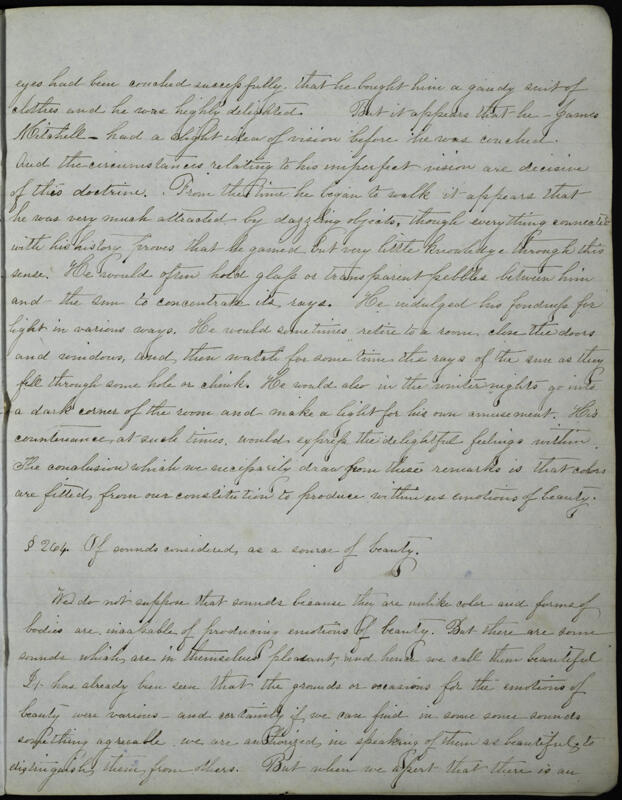 eyes had been couched successfully, that he bought him a gaudy suit of
clothes and he was highly delighted. But it appears that he - James
Mitchell - had a slight idea of vision before he was couched.
And the circumstances relating to his imperfect vision are decisive
of this doctrine. From the time he began to walk it appears that
he was very much attracted by dazzling objects, though everything connected
with his history proves that he gained but very little knowledge through this
sense. He would often hold glass or transparent pebbles between him
and the sun to concentrate its rays. He indulged his fondness for
light in various ways. He would sometimes retire to a room, close the doors
and windows, and then watch for some time the rays of the sun as they
fell through some hole or chink. He would also in the winter nights go into
a dark corner of the room and make a light for his own amusement. His
countenance, at such times, would express the delightful feelings within.
The conclusion which we necessarily draw from these remarks is that colors
are fitted, from our constitution to produce within us emotions of beauty.
§ 264. Of sounds considered, as a source of beauty.
We do not suppose that sounds because they are unlike color and forms of
bodies are incapable of producing emotions of beauty. But there are some
sounds which are in themselves pleasant, and hence we call them beautiful
It has already been seen that the grounds or occasions for the emotions of
beauty were various - and certainly if we can find in some some sounds
something agreable we are authorized, in speaking of them as beautiful, to
distinguish them from others. But when we assert that there is an